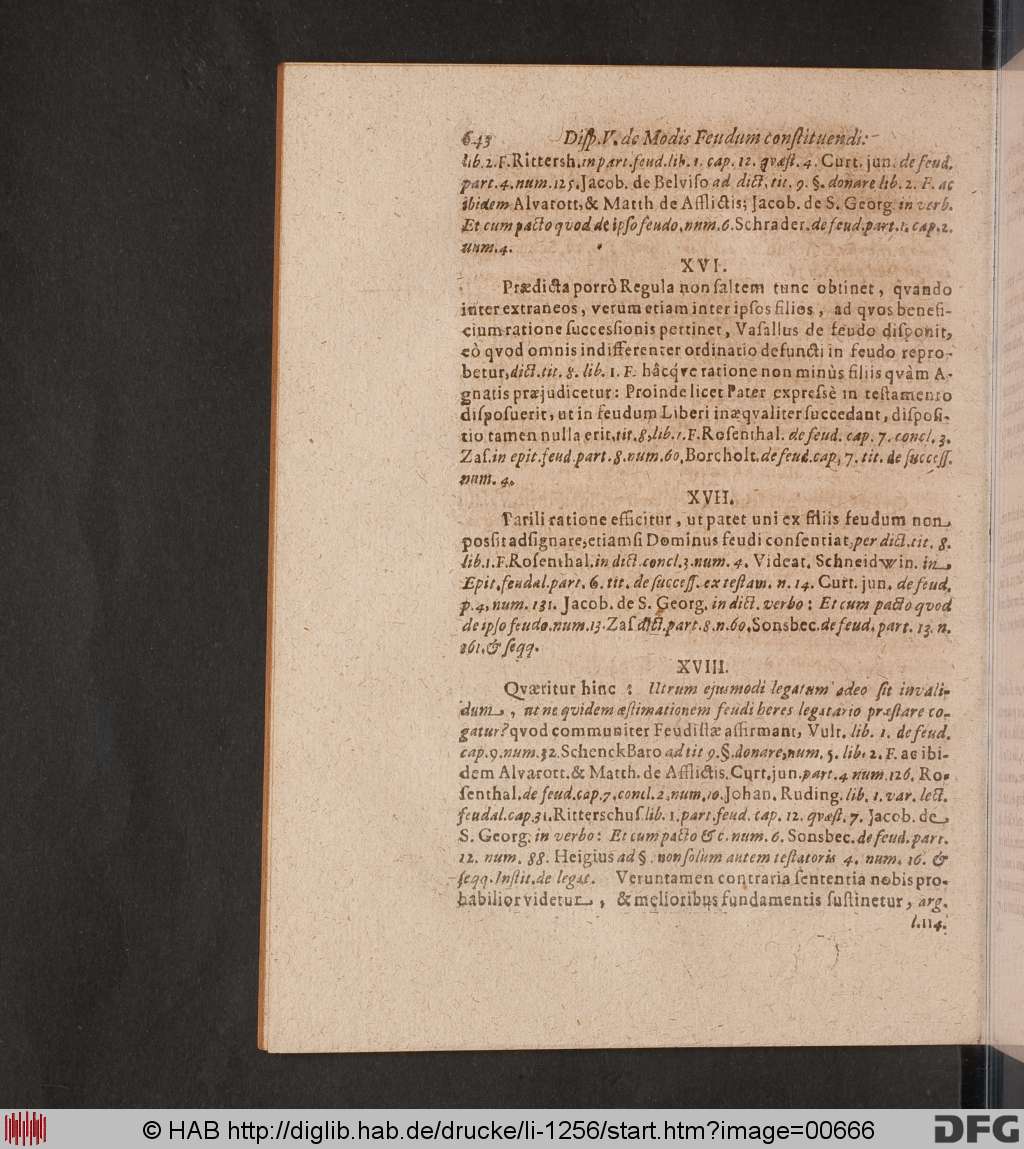 643 Diſp. V. de Modis Feudum conſtituendi:
lib. 2. F. Rittersh. in part. feud. lib. 1. cap. 12. qvæſt. 4. Curt. jun. de feud.
part. 4. num. 125. Jacob. de Belviſo ad dict. tit. 9. §. donare lib. 2. F. ac
ibidem Alvarott. & Matth de Afflictis; Jacob. de S. Georg. in verb.
Et cum pacto qvod de ipſo feudo, num. 6. Schrader. de feud. part. 1. cap. 2.
num. 4.
XVI.
Prædicta porrò Regula non ſaltem tunc obtinet, qvando
inter extraneos, verum etiam inter ipſos filios, ad qvos benefi-
cium ratione ſucceſſionis pertinet, Vaſallus de feudo diſponit,
eò qvod omnis indifferenter ordinatio defuncti in feudo repro-
betur, dict. tit. 8. lib. 1. F. hâcq́ve ratione non minùs filiis qvàm A-
gnatis præjudicetur: Proinde licet Pater expreſsè in teſtamento
diſpoſuerit, ut in feudum Liberi inæqvaliter ſuccedant, diſpoſi-
tio tamen nulla erit, tit. 8. lib. 1. F. Roſenthal. de feud. cap. 7. concl. 3.
Zaſ. in epit. feud. part. 8. num. 60. Borcholt. de feud. cap. 7. tit. de ſucceſſ.
num. 4.
XVII.
Parili ratione efficitur, ut patet uni ex filiis feudum non
poſſit adſignare, etiamſi Dominus feudi conſentiat, per dict. tit. 8.
lib. 1. F. Roſenthal. in dict. concl. 3. num. 4. Videat. Schneidwin. in
Epit. feudal. part. 6. tit. de ſucceſſ. ex teſtam. n. 14. Curt. jun. de feud.
p. 4. num. 131. Jacob. de S. Georg. in dict. verbo: Et cum pacto qvod
de ipſo feudo. num. 13. Zaſ dict. part. 8. n. 60. Sonsbec. de feud. part. 13. n.
261. & ſeqq.
XVIII.
Qværitur hinc: Utrum ejusmodi legatum adeo ſit invali-
dum, ut ne qvidem æſtimationem feudi heres legatario præſtare co-
gatur? qvod communiter Feudiſtæ affirmant, Vult. lib. 1. de feud.
cap. 9. num. 32. Schenck Baro ad tit 9. §. donare, num. 5. lib. 2. F. ac ibi-
dem Alvarott. & Matth. de Afflictis. Curt. jun. part. 4 num. 126. Ro-
ſenthal. de feud. cap. 7. concl. 2. num. 10. Johan. Ruding. lib. 1. var. lect.
feudal. cap. 31. Ritterschuſ lib. 1. part. feud. cap. 12. qvæſt. 7. Jacob. de
S. Georg. in verbo: Et cum pacto &c. num. 6. Sonsbec. de feud. part.
12. num. 88. Heigius ad §. non ſolùm autem teſtatoris 4. num. 16. &
ſeqq. Inſtit. de legat. Veruntamen contraria ſententia nobis pro-
babilior videtur, & melioribus fundamentis ſuſtinetur, arg.
l. 114.
© HAB http://diglib.hab.de/drucke/li-1256/start.htm?image=00666
DFG